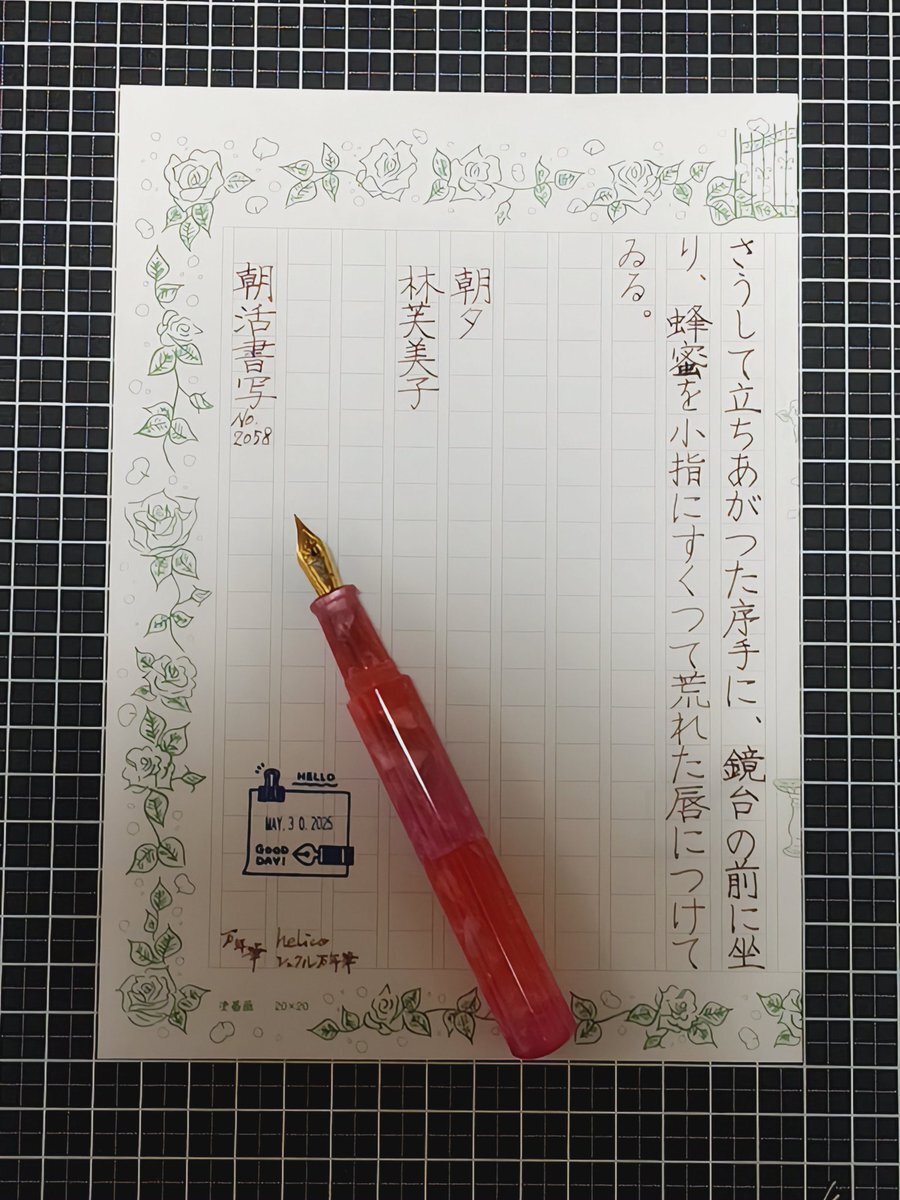 さうして立ちあがつた序手に、鏡台の前に坐
り、蜂蜜を小指にすくつて荒れた唇につけて
ゐる。
朝夕
林芙美子
朝活書写
No.
2058
HELLO
MAY.30.2025
GOOD
DAY!
万年筆 helico
シェフル万年筆
20×20